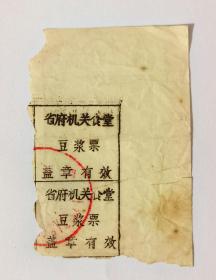 省府机关食堂
豆浆票
盖章有效
省府机关食堂
豆浆票
盖章有效